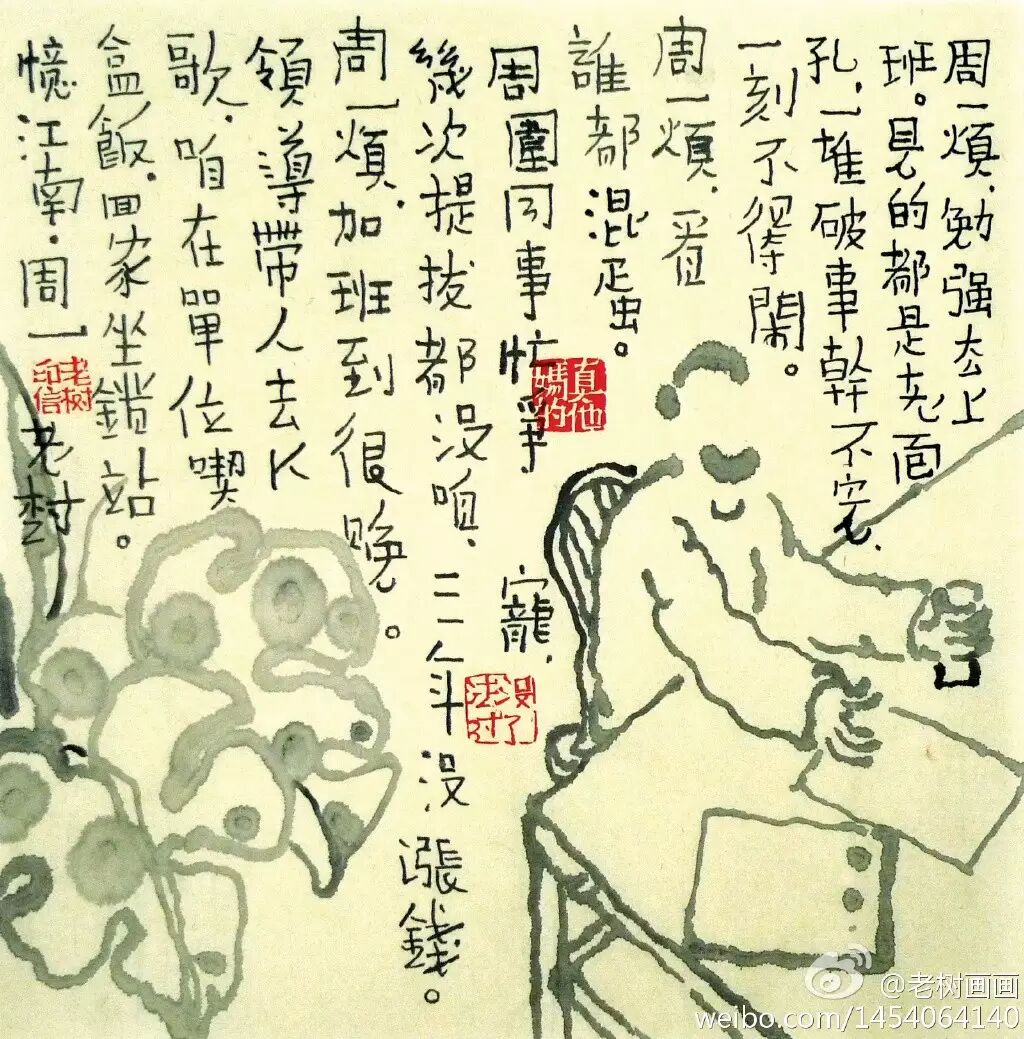 周一煩,勉强去上
班。見的都是面
孔,一堆破事幹不完,
一刻不得閑。
周一煩,看
誰都混蛋。
周圍同事忙爭寵,
幾次提拔都没咱,没漲錢。
周一煩,加班到很晚。
領導帶人去K
歌,咱在單位喫
盒飯,回家坐鎖站。
憶江南·周一 老树
真他媽的
没法过了
老树印信
@老树画画
weibo.com/1454064140